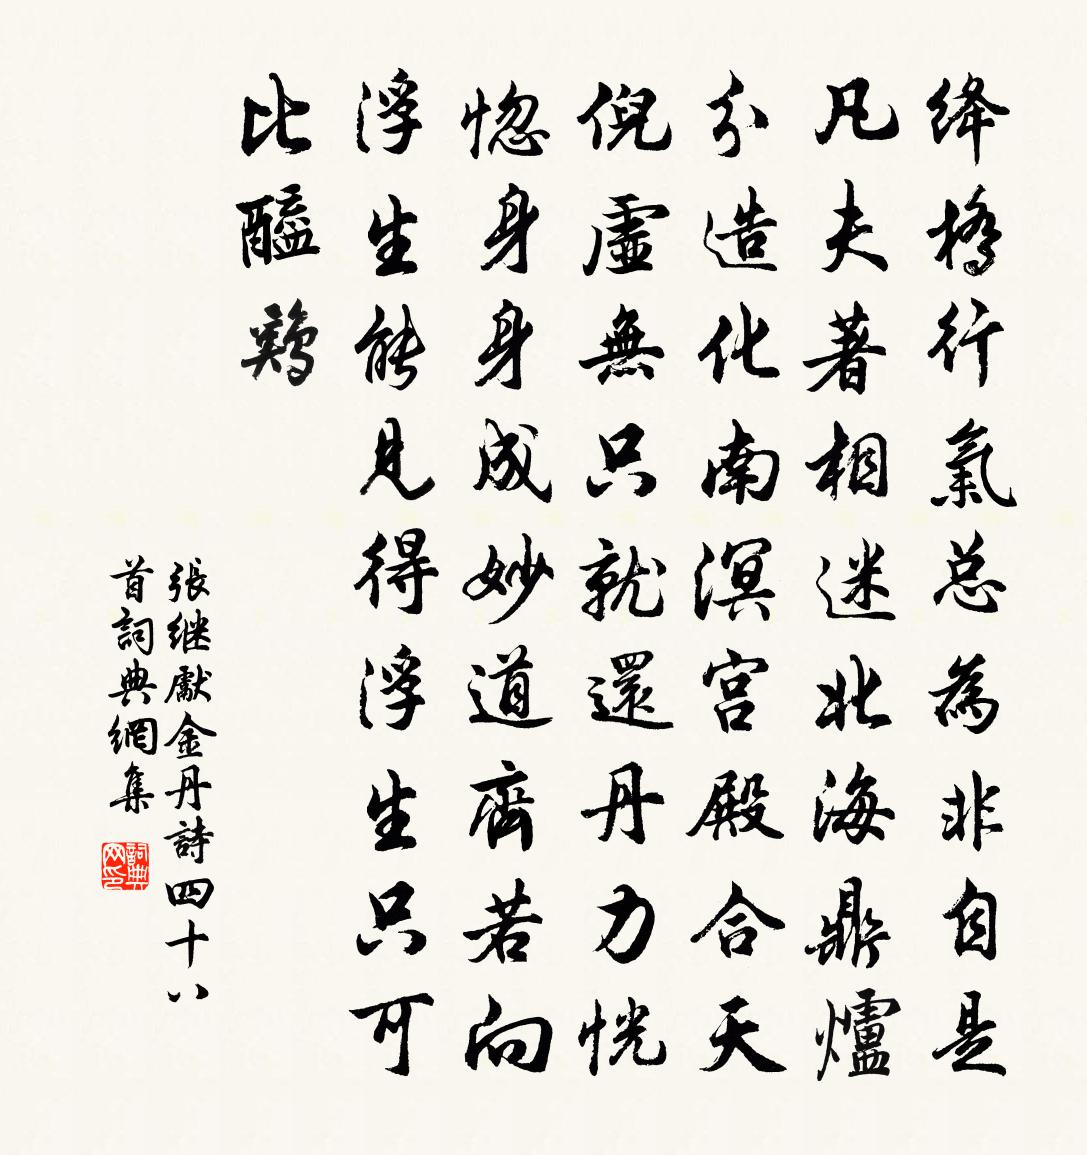 絳橋行氣總為非自是
凡夫著相迷北海鼎爐
分造化南溟宮殿合天
倪虛無只就還丹力恍
惚身身成妙道齊若向
浮生能見得浮生只可
比醯鷄
張继獻金丹詩四十八
首詞典網集
詞典网印